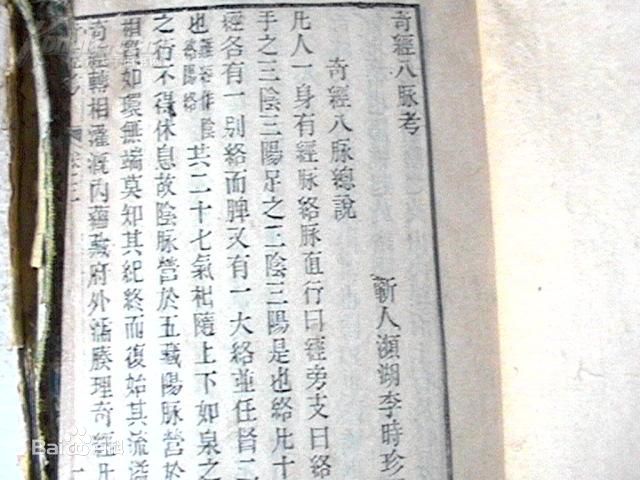 奇經八脉考
蘄人瀕湖李時珍
奇經八脉總說
凡人一身有經脉絡脉直行曰經旁支曰絡
手之三陰三陽足之三陰三陽是也絡凡十
經各有一別絡而脾又有一大絡並任督二
也難經作陰絡陽絡其二十七氣相隨上下如泉之
之行不得休息故陰脉營於五藏陽脉營於
相貫如環無端莫知其紀終而復始其流溢
奇經轉相灌溉內藴藏府外濡腠理奇經凡
Bai百科